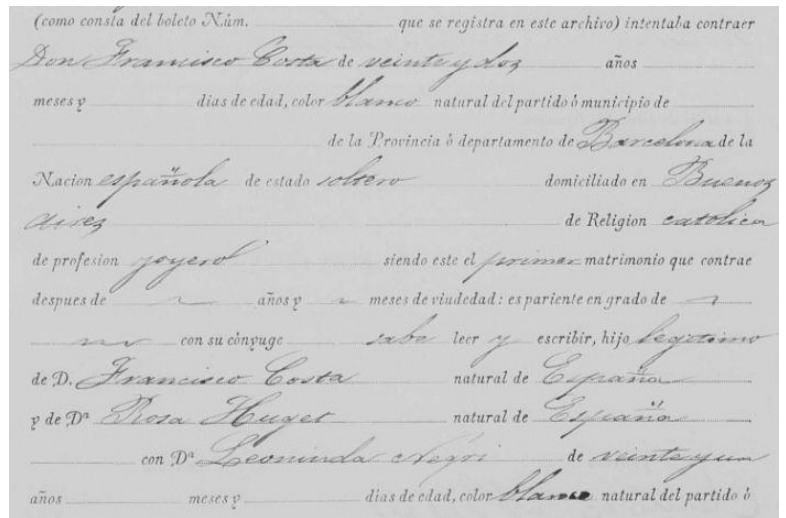 (como consta del boleto Núm. que se registra en este archivo) intentaba contraer
Don Francisco Costa de veinte y dos años
meses y dias de edad, color blanco natural del partido ó municipio de
de la Provincia ó departamento de Barcelona de la
Nacion española de estado soltero domiciliado en Buenos
Aires de Religion católica
de profesion joyero siendo este el primer matrimonio que contrae
despues de años y meses de viudedad: es pariente en grado de
con su cónyuge sabe leer y escribir, hijo legítimo
de D. Francisco Costa natural de España
y de Dª Rosa Huget natural de España
con Dª Leoninda Negri de veinte y un
años meses y dias de edad, color blanco natural del partido ó